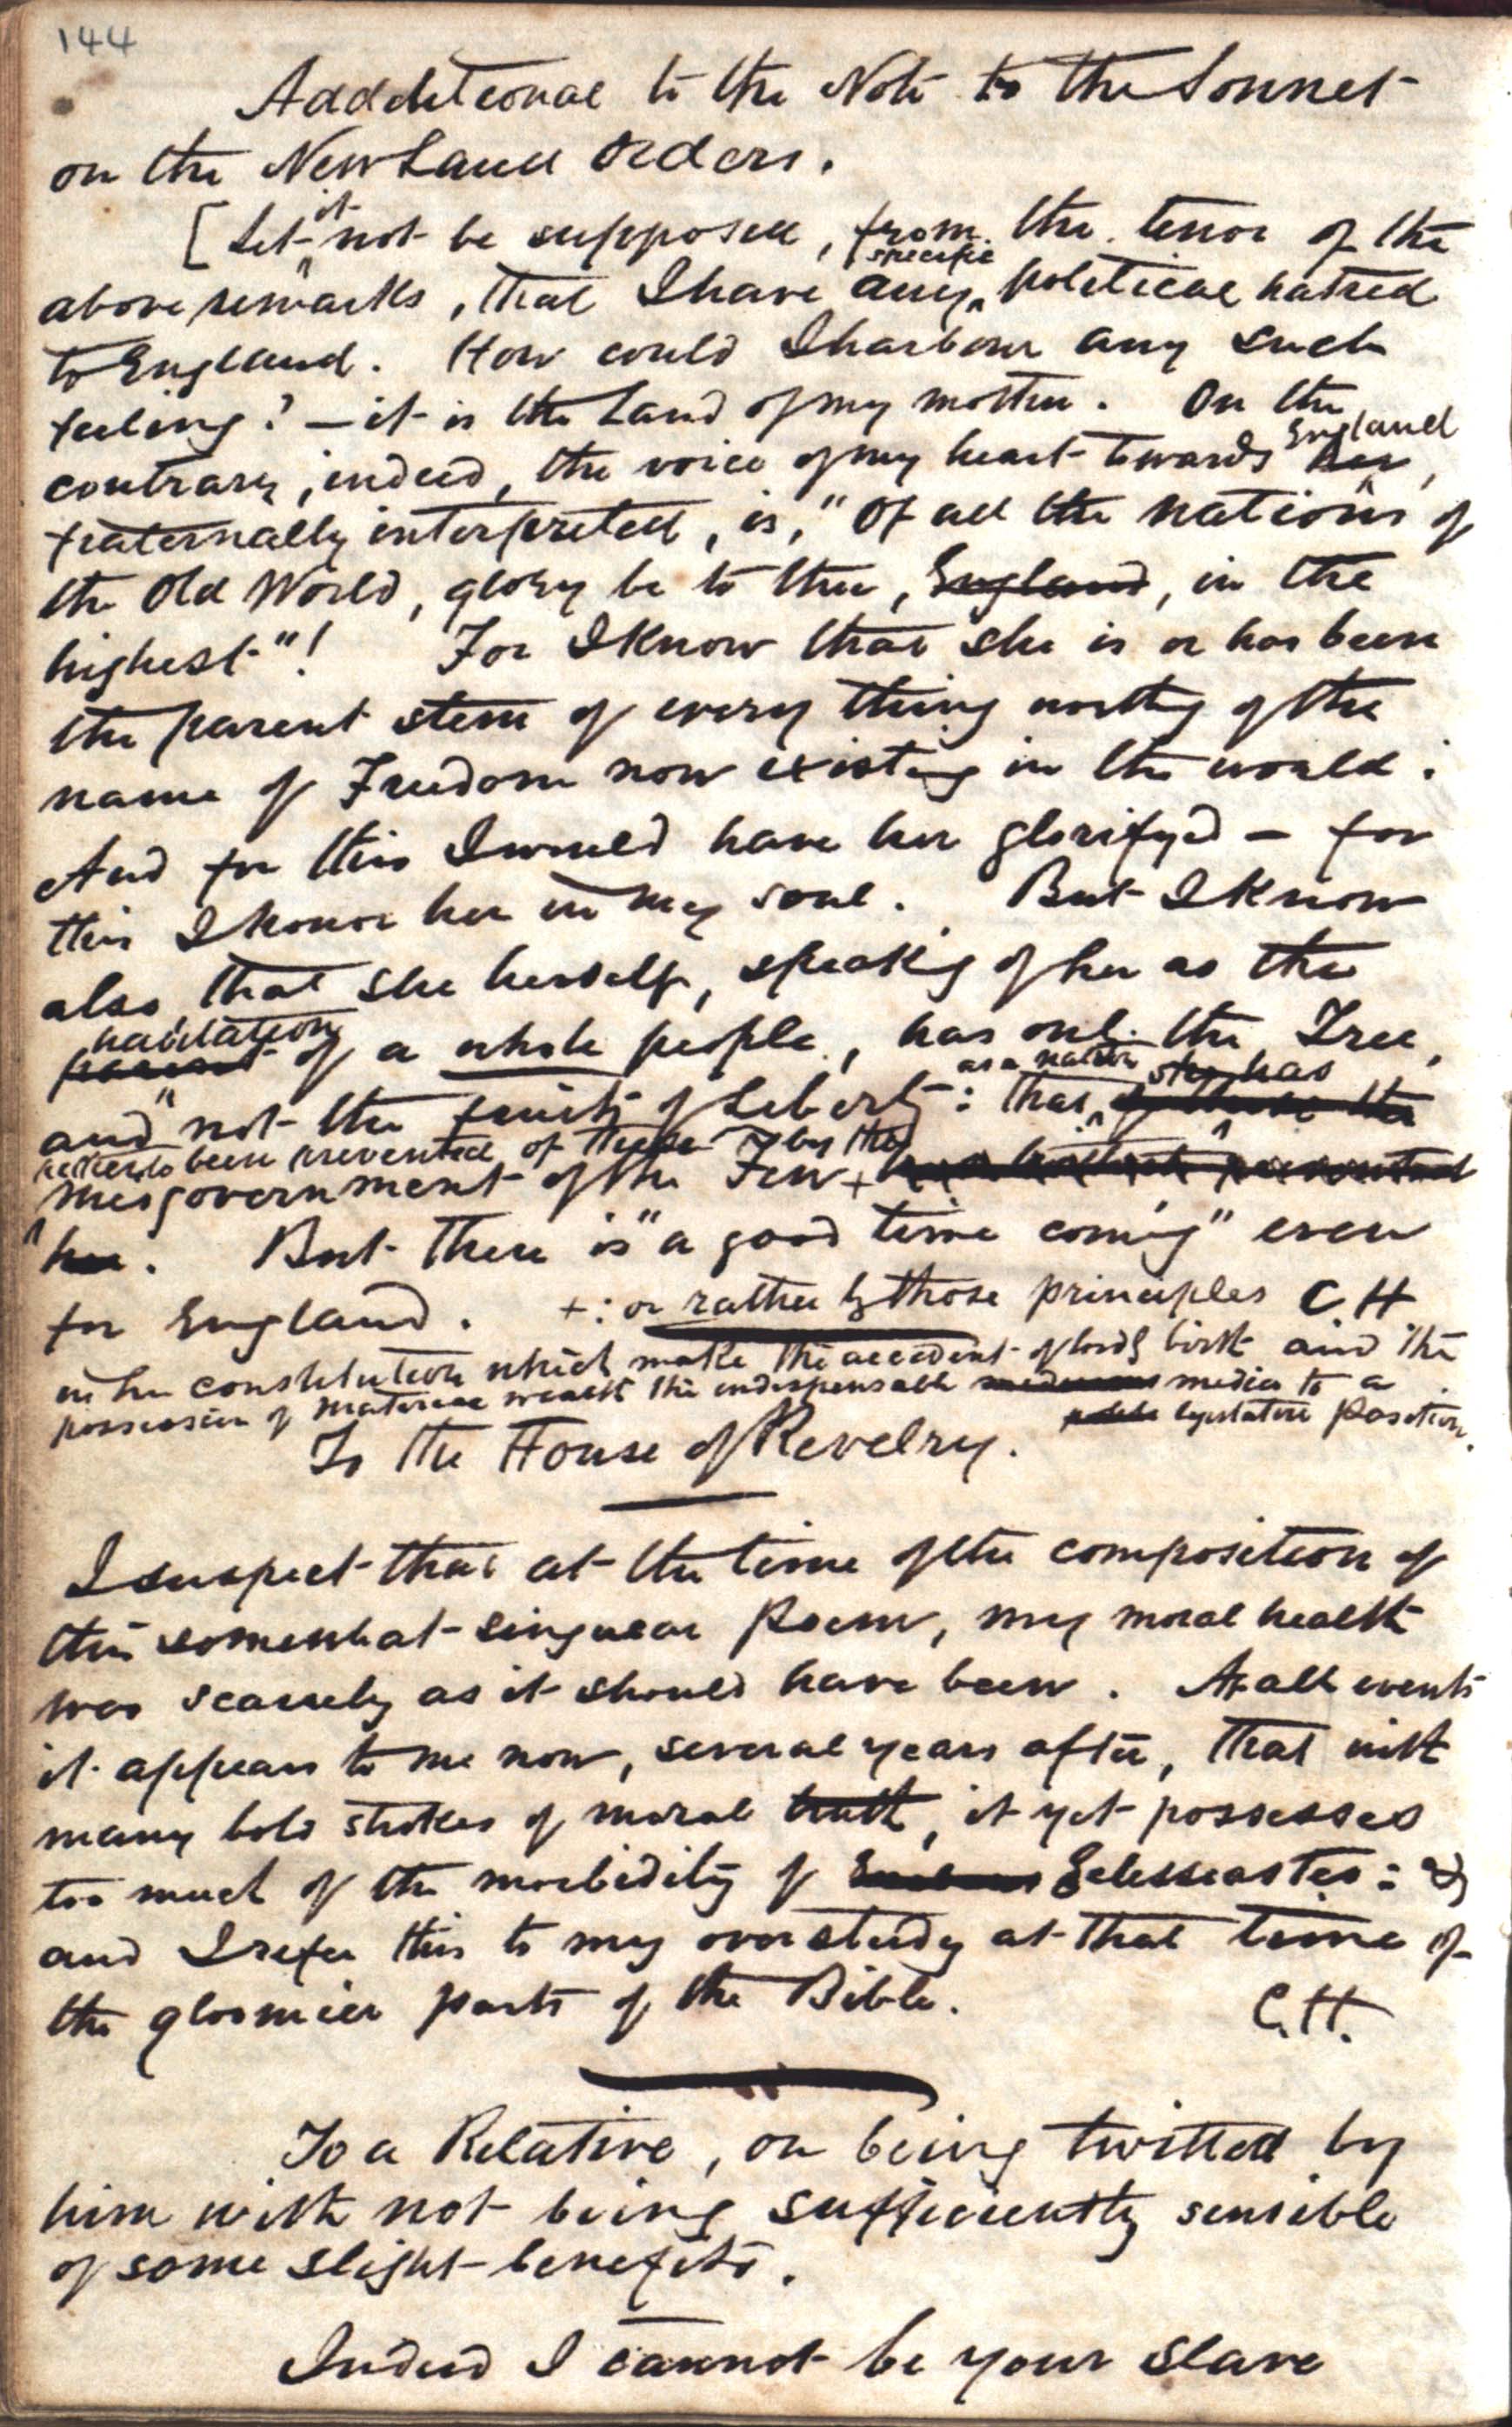 144
Addditional to the Note to the Sonnet
on the New Land Orders.
[Let it not be supposed, from the tenor of the
above remarks, that I have any specific political hatred
to England. How could I harbour any such
feeling? — it is the Land of my mother. On the
contrary, indeed, the voice of my heart towards her England,
fraternally interpreted, is, "Of all the nations of
the Old World, glory be to thee, England, in the
highest"! For I know that she is or has been
the parent stem of every thing worthy of the
name of Freedom now existing in the world:
And for this I would have her glorifyed — for
this I honor her in my soul. But I know
also, that she herself, speaking of her as the
parent habitation of a whole people, has only the Tree,
and not the fruits of Liberty: that, as a nation she has
hitherto been prevented of these by the
misgovernment of the Few + prevented
her. But there is "a good time coming" even
for England. +: or rather by those principles C H
in her constitution which make the accident of lordly birth and the
possession of material wealth the indispensable media to a
legislative position.
To the House of Revelry.
I suspect that at the time of the composition of
this somewhat singular Poem, my moral health
was scarcely as it should have been. At all events
it appears to me now, several years after, that with
many bold strokes of moral truth, it yet possesses
too much of the morbidity of Eclessiastes: &
and I refer this to my over study at that time of
the gloomier parts of the Bible. C.H.
To a Relative, on being twitted by
him with not being sufficiently sensible
of some slight benefits.
Indeed I cannot be your slave